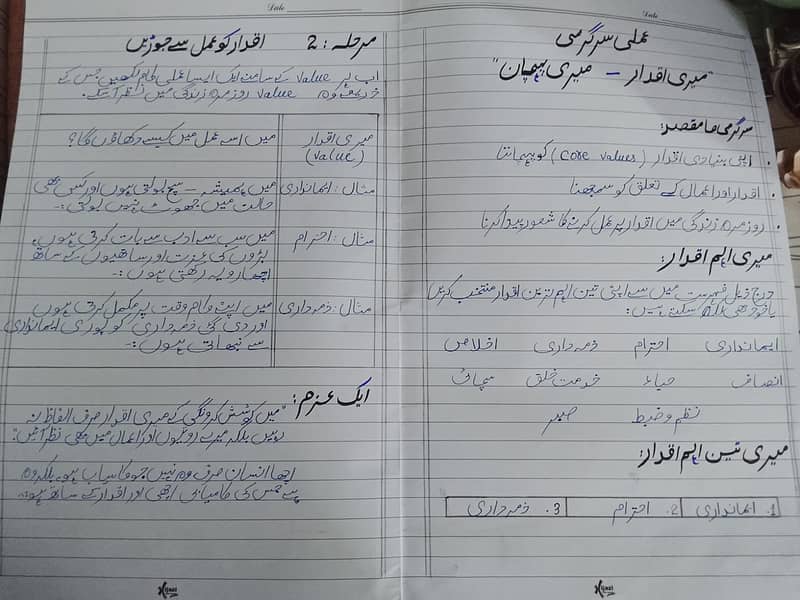 Date
عملی سرگرمی
"میری اقدار – میری پہچان"
سرگرمی کا مقصد:
• اپنی بنیادی اقدار (Core values) کو پہچاننا
• اقدار اور اعمال کے تعلق کو سمجھنا
• روزمرہ زندگی میں اقدار پر عمل کرنے کا شعور پیدا کرنا
میری اہم اقدار:
درج ذیل فہرست میں سے اپنی تین اہم ترین اقدار منتخب کریں
یا خود بھی لکھ سکتے ہیں:
ایمانداری احترام ذمہ داری اخلاص
انصاف حیاء خدمت خلق سچائی
نظم و ضبط صبر
میری تین اہم اقدار:
1. ایمانداری 2. احترام 3. ذمہ داری
Date
مرحلہ: 2 اقدار کو عمل سے جوڑیں
اب ہر value کے سامنے ایک ایسا عملی کام لکھیں جس کے
ذریعے وہ value روزمرہ زندگی میں نظر آسکے۔
میری اقدار (value) میں اسے عمل میں کیسے دکھاؤں گا؟
مثال: ایمانداری میں ہمیشہ سچ بولتی ہوں اور کسی بھی
حالت میں جھوٹ نہیں بولتی۔
مثال: احترام میں سب سے ادب سے بات کرتی ہوں،
بڑوں کی عزت اور ساتھیوں کے ساتھ
اچھا رویہ رکھتی ہوں۔
مثال: ذمہ داری میں اپنے کام وقت پر مکمل کرتی ہوں
اور دی گئی ذمہ داری کو پوری ایمانداری
سے نبھاتی ہوں۔
ایک عزم:
"میں کوشش کرونگی کہ میری اقدار صرف الفاظ نہ
رہیں بلکہ میرے رویوں اور اعمال میں بھی نظر آئیں"
اچھا انسان صرف وہ نہیں جو کامیاب ہو، بلکہ وہ
ہے جس کی کامیابی اچھی اور اقدار کے ساتھ ہو۔